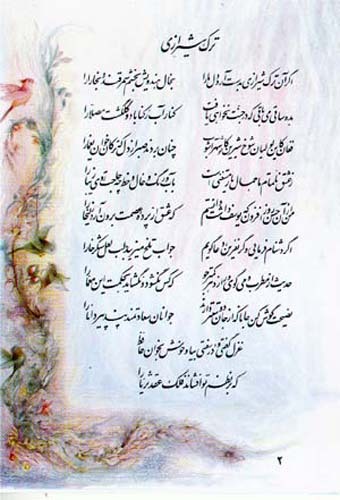 ترک شیرازی
اگر آن ترک شیرازی بدست آرد دل ما را بخال هندویش بخشم سمرقند و بخارا را
بده ساقی می باقی که در جنت نخواهی یافت کنار آب رکناباد و گلگشت مصلا را
فغان کاین لولیان شوخ شیرین کار شهرآشوب چنان بردند صبر از دل که ترکان خوان یغما را
ز عشق ناتمام ما جمال یار مستغنی است بآب و رنگ و خال و خط چه حاجت روی زیبا را
من از آن حسن روزافزون که یوسف داشت دانستم که عشق از پرده عصمت برون آرد زلیخا را
اگر دشنام فرمائی و گر نفرین دعا گویم جواب تلخ میزیبد لب لعل شکرخا را
حدیث از مطرب و می گو و راز دهر کمتر جو که کس نگشود و نگشاید بحکمت این معما را
نصیحت گوش کن جانا که از جان دوست تر دارند جوانان سعادتمند پند پیر دانا را
غزل گفتی و در سفتی بیا و خوش بخوان حافظ
که بر نظم تو افشاند فلک عقد ثریا را
۲